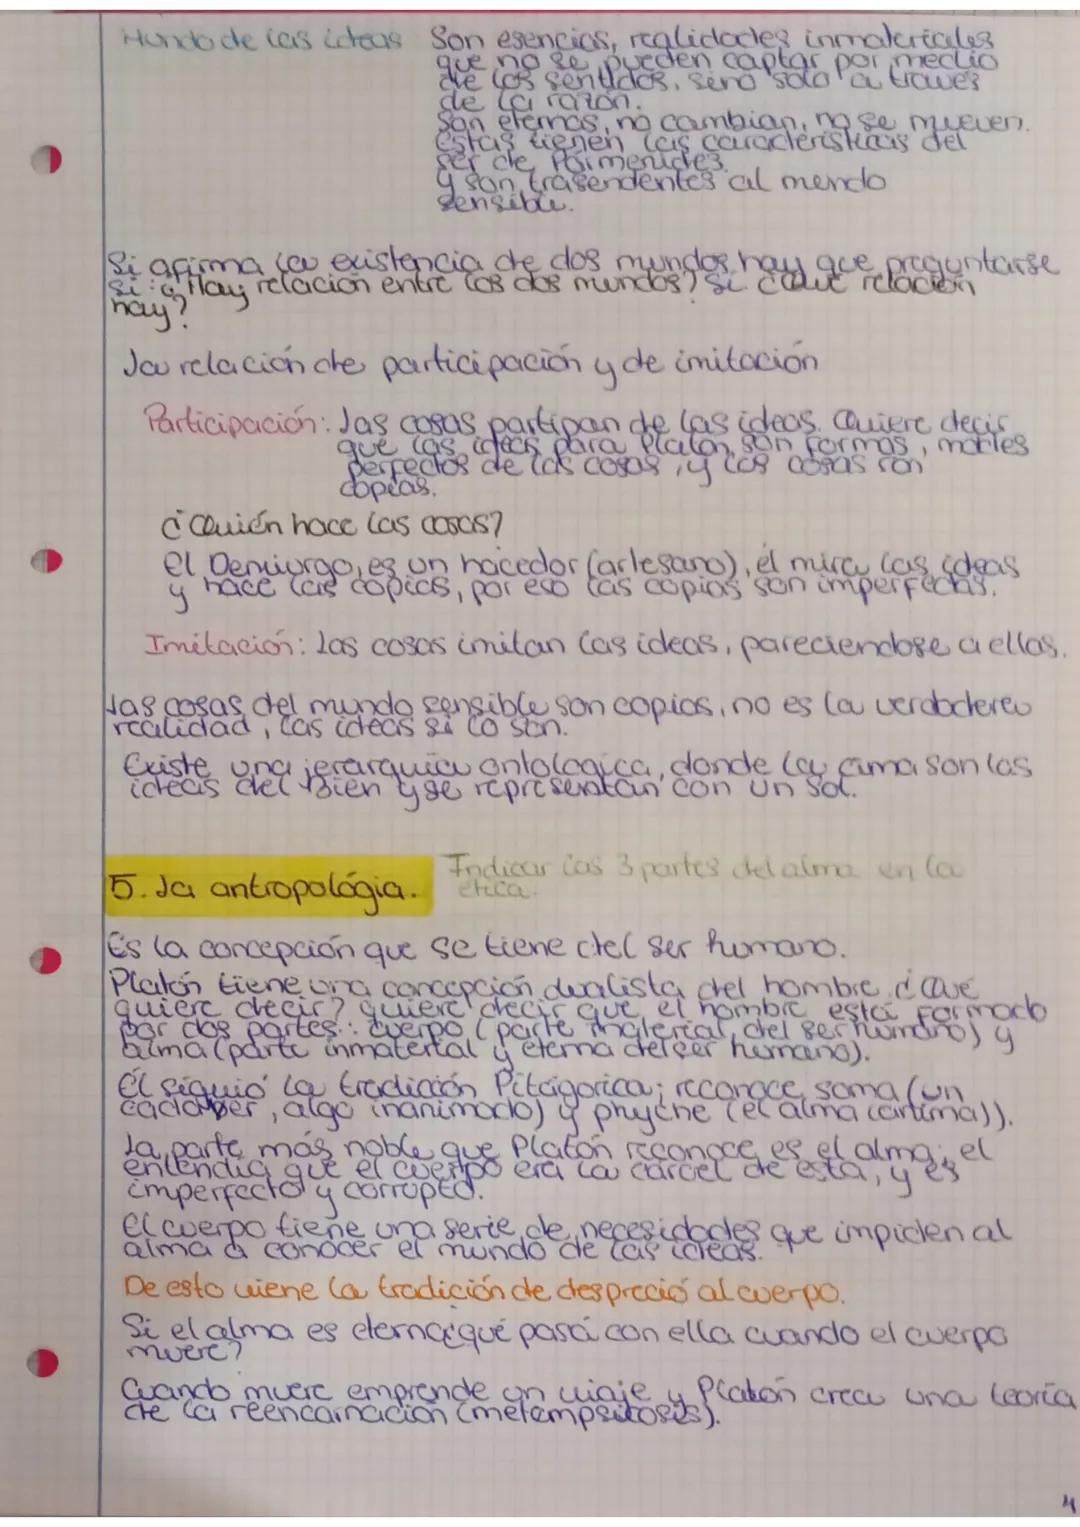 Mundo de las ideas Son esencias, realidades inmateriales
que no se pueden captar por medio
de los sentidos, sino solo a traves
de la razón.
Son eternas, no cambian, no se mueven.
Estas tienen las caracteristicas del
ser de Parmenides
y son trasendentes al mundo
sensible.
Si afirma la existencia de dos mundos hay que preguntarse
si: ¿Hay relación entre los dos mundos? Si ¿Qué relación
hay?
La relación de participación y de imitación
Participación: Las cosas partipan de las ideas. Quiere decir
que las ideas para Platón, son formas,
perfectos de las cosas, y las cosas son
copias.
¿Quién hace las cosas?
El Demiurgo, es un hacedor (artesano), él mira las ideas
y hace las copias, por eso las copias son imperfectas.
Imitación: Las cosas imitan las ideas, pareciendose a ellas.
Las cosas del mundo sensible son copias, no es la verdadera
realidad, las ideas si lo son.
Existe una jerarquia ontologica, donde la cima son las
ideas del Bien y se representan con un sol.
5. La antropológia. Indicar las 3 partes del alma en la
etica.
Es la concepción que se tiene del ser humano.
Platón tiene una concepción dualista del hombre ¿Qué
quiere decir? quiere decir que el hombre está formado
por dos partes: cuerpo (parte material del ser humano) y
alma (parte inmaterial y eterna del ser humano).
Él siguió la tradición Pitágorica; reconoce soma (un
cadaver, algo inanimado) y phyche (el alma (anima)).
La parte más noble que Platón reconoce es el alma; el
entendia que el cuerpo era la carcel de esta, y es
imperfecto y corrupto.
El cuerpo tiene una serie de necesidades que impiden al
alma a conocer el mundo de las ideas.
De esto viene la tradición de despreció al cuerpo.
Si el alma es eterna ¿qué pasa con ella cuando el cuerpo
muere?
Cuando muere emprende un viaje y Platón crea una teoría
de la reencarnación (metempsitosis).
4